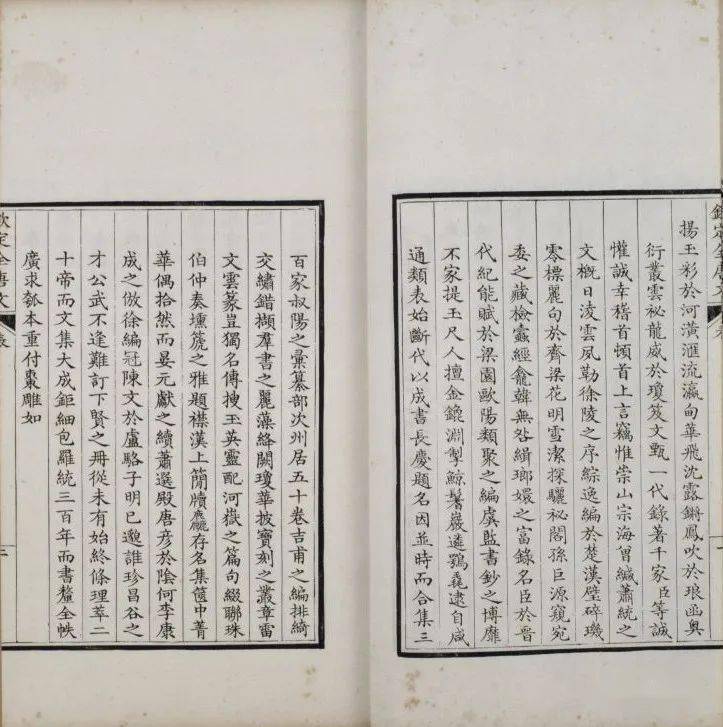 欽定全唐文
揚玉彩於河潢滙流瀛甸華飛沈露鏘鳳吹於琅函奧
衍叢雲祕龍威於瓊笈文甄一代錄著千家臣等誠
懽誠幸稽首頓首上言竊惟崇山宗海曾緘蕭統之
文概日淩雲夙勒徐陵之序綜逸編於楚漢璧碎璣
零標麗句於齊梁花明雪潔探驪祕閣孫巨源窺宛
委之藏檢蠹經龕韓無咎緝瑯嬛之富錄名臣於晉
代紀能賦於梁園歐陽類聚之編虞監書鈔之博靡
不家提玉尺人擅金鎞淵掣鯨鬐巖遴鶚毳逮自咸
通類表始斷代以成書長慶題名因並時而合集三
百家叔陽之彙纂部次州居五十卷吉甫之編排綺
交繡錯擷羣書之麗藻絳闕瓊華披寶刻之叢章雷
文雲篆豈獨名傳搜玉英靈配河嶽之篇句綴聯珠
伯仲奏壎篪之雅題襟漢上簡牘麤存名集篋中菁
華偶拾然而晏元獻之續蕭選殿唐彥於陰何李康
成之倣徐編冠陳文於盧駱子明已邈誰珍昌谷之
才公武不逢難訂下賢之冊從未有始終條理萃二
十帝而文集大成鉅細包羅統三百年而書釐全帙
廣求瓻本重付棗雕如
欽定全唐文